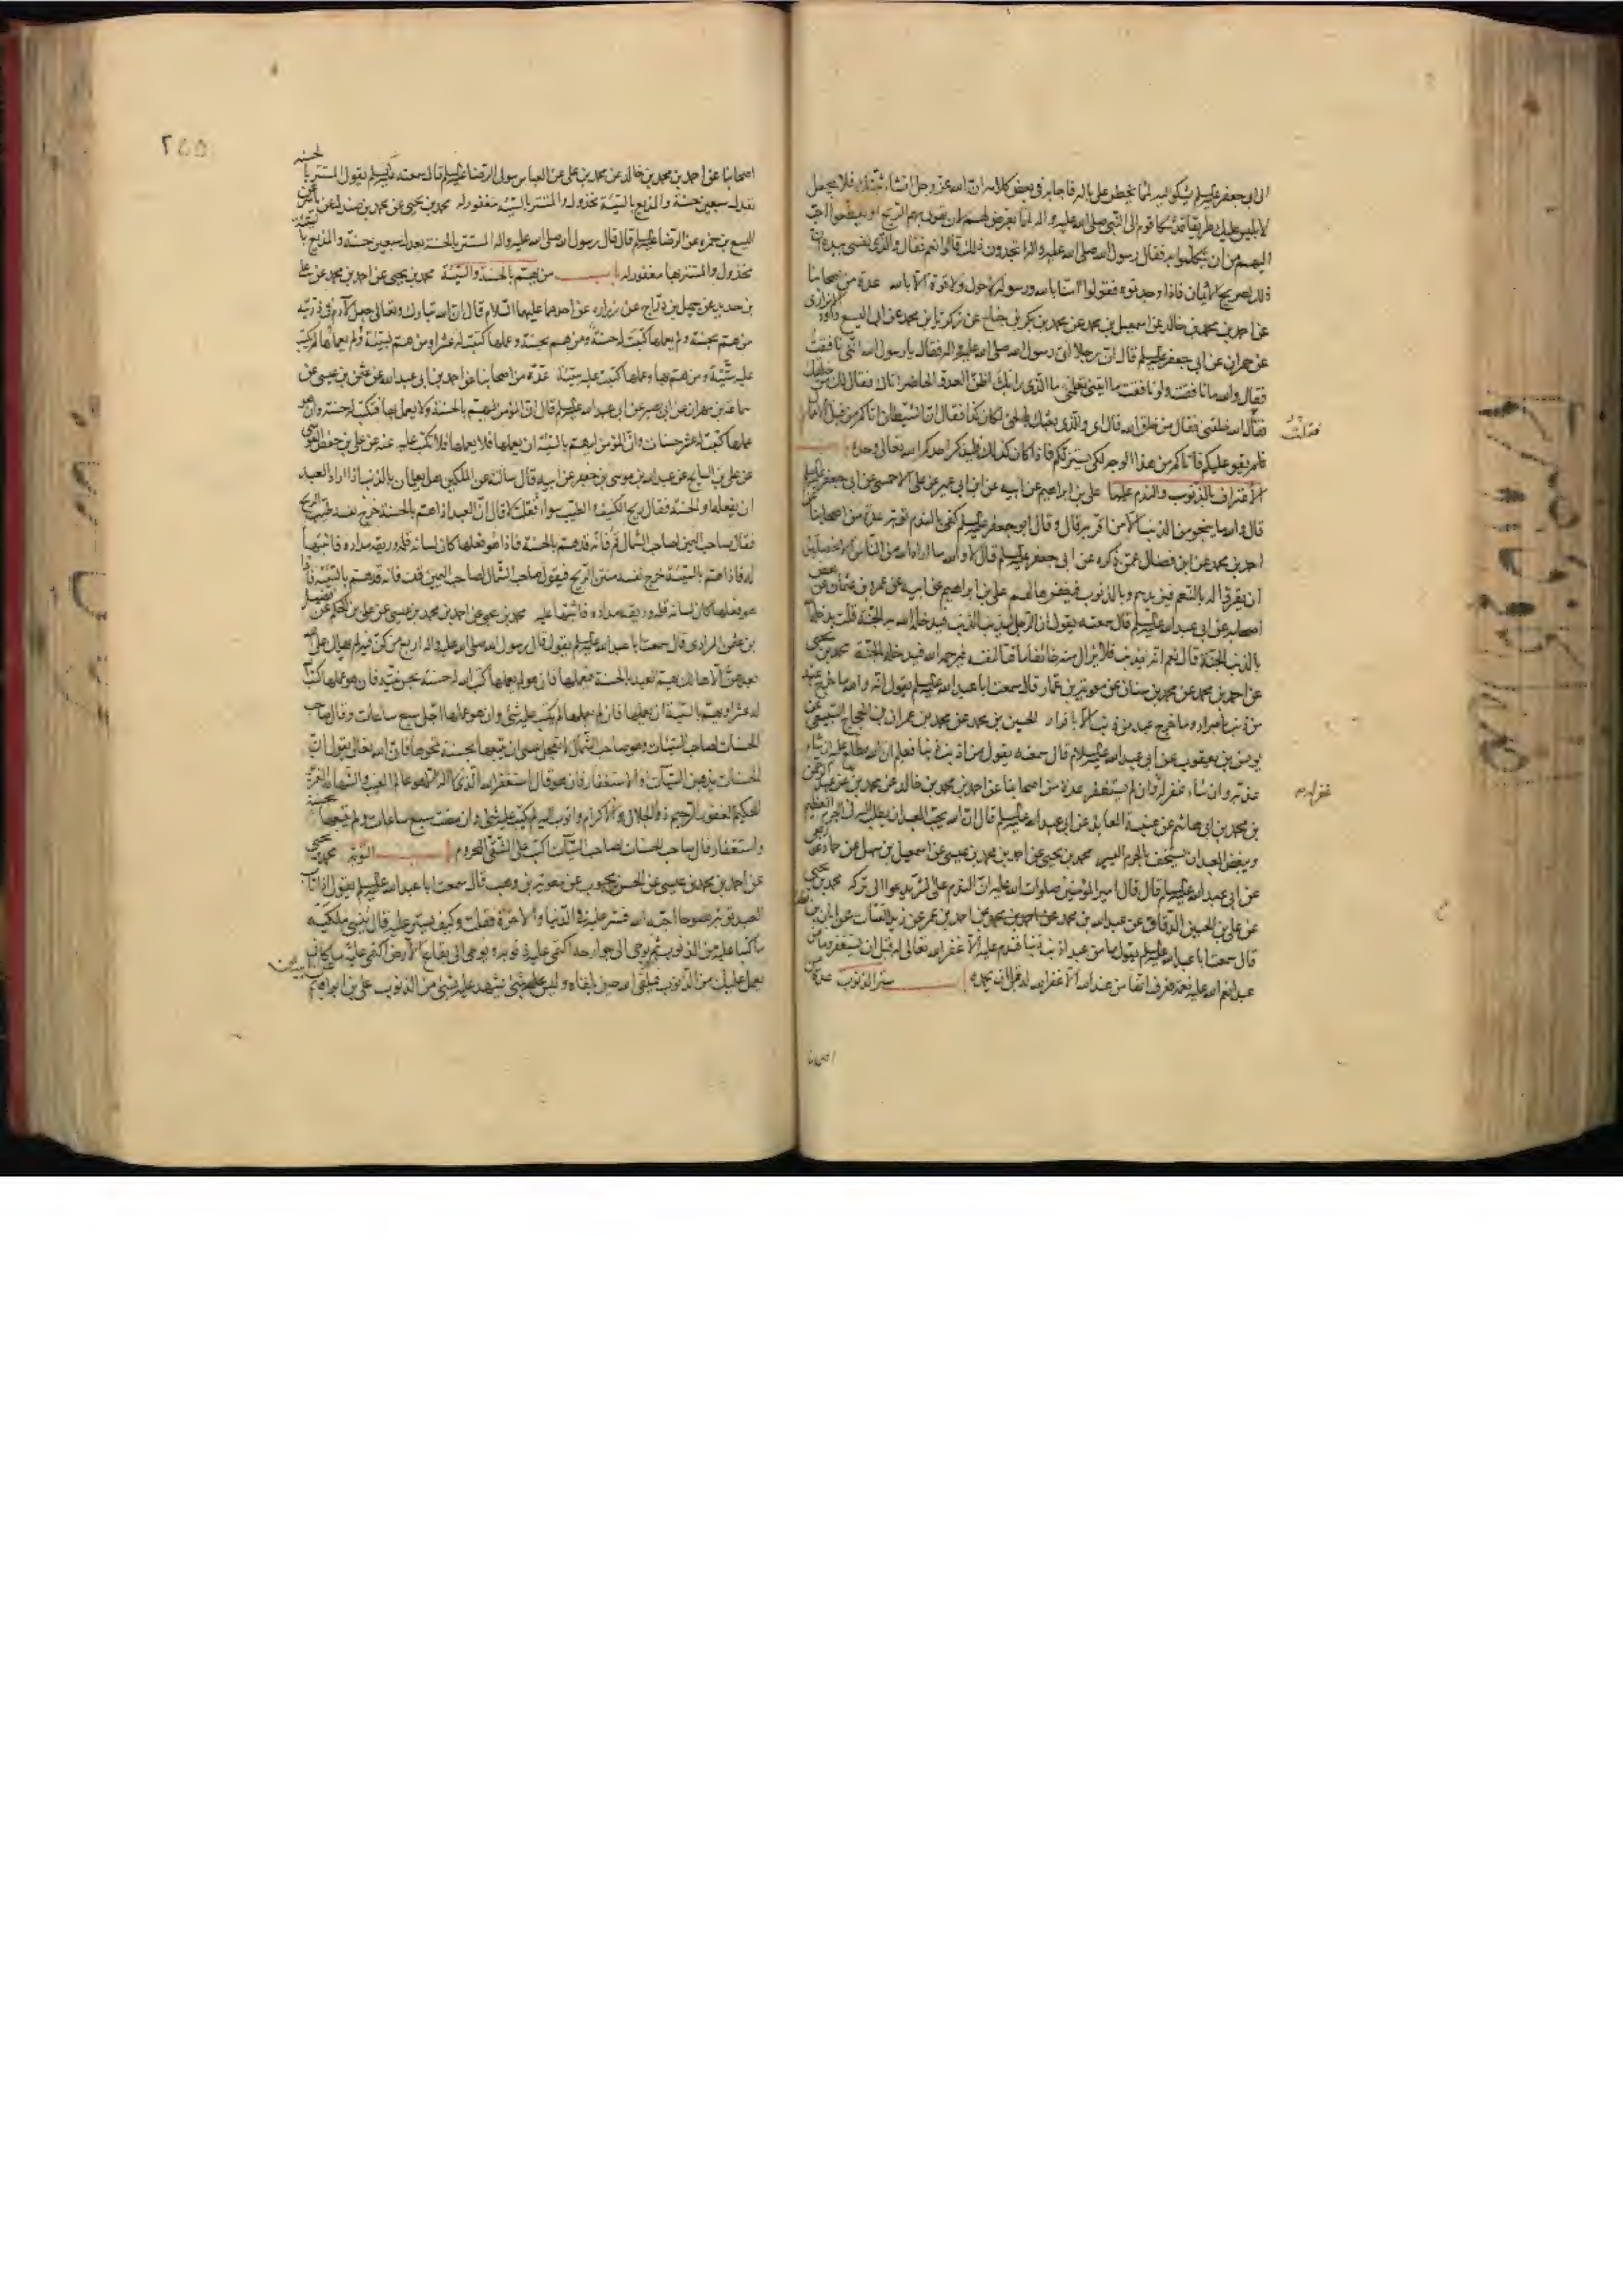 الى ابى جعفر عليه السلم يشكو اليه لمما يخطر على باله فاجابه فى بعض كلامه ان الله عز وجل ان شاء ثبتك فلا يجعل
لابليس عليك طريقا قد شكا قوم الى النبى صلى الله عليه واله لمما يعرض لهم لان تهوى بهم الريح او يقطعوا احب
اليهم من ان يتكلموا به فقال رسول الله صلى الله عليه واله اتجدون ذلك قالوا نعم فقال والذى نفسى بيده ان
ذلك لصريح الايمان فاذا وجدتموه فقولوا امنا بالله ورسوله ولا حول ولا قوة الا بالله عدة من اصحابنا
عن احمد بن محمد بن خالد عن اسمعيل بن محمد عن محمد بن بكر بن جناح عن زكريا بن محمد عن ابى اليسع داود الابزارى
عن حمران عن ابى جعفر عليه السلم قال ان رجلا اتى رسول الله صلى الله عليه واله فقال يا رسول الله انى نافقت
فقال والله ما نافقت ولو نافقت ما اتيتنى تعلمنى ما الذى رابك اظن العدو الحاضر اتاك فقال لك من خلقك
فقلت الله خلقنى فقال من خلق الله قال اى والذى بعثك بالحق لكان كذا فقال ان الشيطان اتاكم من قبل الاعمال
فلم يقو عليكم فاتاكم من هذا الوجه لكى يستزلكم فاذا كان كذلك فليذكر احدكم الله تعالى وحده باب
الاعتراف بالذنوب والندم عليها على بن ابراهيم عن ابيه عن ابن ابى عمير عن على الاحمسى عن ابى جعفر عليه السلم
قال والله ما ينجو من الذنب الا من اقر به قال وقال ابو جعفر عليه السلم كفى بالندم توبة عدة من اصحابنا عن
احمد بن محمد عن ابن فضال عمن ذكره عن ابى جعفر عليه السلم قال لا والله ما اراد الله من الناس الا خصلتين
ان يقروا له بالنعم فيزيدهم وبالذنوب فيغفرها لهم على بن ابراهيم عن ابيه عن عمرو بن عثمان عن بعض
اصحابه عن ابى عبد الله عليه السلم قال سمعته يقول ان الرجل ليذنب الذنب فيدخله الله به الجنة قلت يدخله الله
بالذنب الجنة قال نعم انه ليذنب فلا يزال منه خائفا ماقتا لنفسه فيرحمه الله فيدخله الجنة محمد بن يحيى
عن احمد بن محمد عن محمد بن سنان عن معوية بن عمار قال سمعت ابا عبد الله عليه السلم يقول انه والله ما خرج عبد
من ذنب باصرار وما خرج عبد من ذنب الا باقرار الحسين بن محمد عن محمد بن عمران بن الحجاج السبيعى عن
يونس بن يعقوب عن ابى عبد الله عليه السلام قال سمعته يقول من اذنب ذنبا فعلم ان الله مطلع عليه ان شاء
عذبه وان شاء غفر له وان لم يستغفر عدة من اصحابنا عن احمد بن محمد بن خالد عن محمد بن على عن عبد الرحمن
بن محمد بن ابى هاشم عن عنبسة العابد عن ابى عبد الله عليه السلم قال ان الله يحب العبد ان يطلب اليه فى الجرم العظيم
ويبغض العبد ان يستخف بالجرم اليسير محمد بن يحيى عن احمد بن محمد بن عيسى عن اسمعيل بن سهل عن حماد عن ربعى
عن ابى عبد الله عليه السلم قال قال امير المؤمنين صلوات الله عليه ان الندم على الشر يدعو الى تركه محمد بن يحيى
عن على بن الحسين الدقاق عن عبد الله بن محمد عن احمد بن عمر عن زيد القتات عن ابان بن تغلب
قال سمعت ابا عبد الله عليه السلم يقول ما من عبد اذنب ذنبا فندم عليه الا غفر الله تعالى له قبل ان يستغفر وما من
عبد انعم الله عليه نعمة فعرف انها من عند الله الا غفر الله له قبل ان يحمده باب ستر الذنوب عدة من
فقلت
غفر له
اصحابنا
٢٥٥
اصحابنا عن احمد بن محمد بن خالد عن محمد بن على عن العباس مولى الرضا عليه السلم قال سمعته عليه السلم يقول المستتر بالحسنة
تعدل سبعين حسنة والمذيع بالسيئة مخذول والمستتر بالسيئة مغفور له محمد بن يحيى عن محمد بن صندل عن ياسر عن
اليسع بن حمزه عن الرضا عليه السلم قال قال رسول الله صلى الله عليه واله المستتر بالحسنة تعدل سبعين حسنة والمذيع بالسيئة
مخذول والمستتر بها مغفور له باب من يهم بالحسنة والسيئة محمد بن يحيى عن احمد بن محمد عن على
بن حديد عن جميل بن دراج عن زراره عن احدهما عليهما السلام قال ان الله تبارك وتعالى جعل لآدم فى ذريته
من هم بحسنة ولم يعملها كتبت له حسنة ومن هم بحسنة وعملها كتبت له عشرا ومن هم بسيئة ولم يعملها لم تكتب
عليه سيئة ومن هم بها وعملها كتبت عليه سيئة عدة من اصحابنا عن احمد بن ابى عبد الله عن عثمن بن عيسى عن
سماعة بن مهران عن ابى بصير عن ابى عبد الله عليه السلم قال ان المؤمن ليهم بالحسنة ولا يعمل بها فتكتب له حسنة وان هو
عملها كتبت له عشر حسنات وان المؤمن ليهم بالسيئة ان يعملها فلا يعملها فلا تكتب عليه عنه عن على بن حفص العوسى
عن على بن السايح عن عبد الله بن موسى بن جعفر عن ابيه قال سالته عن الملكين هل يعلمان بالذنب اذا اراد العبد
ان يفعله او الحسنة فقال ريح الكنيف والطيب سواء فقلت لا قال ان العبد اذا هم بالحسنة خرج نفسه طيب الريح
فقال صاحب اليمين لصاحب الشمال قم فانه قد هم بالحسنة فاذا هو فعلها كان لسانه قلمه وريقه مداده فاثبتها
له فاذا هم بالسيئة خرج نفسه منتن الريح فيقول صاحب الشمال لصاحب اليمين قف فانه قد هم بالسيئة فاذا
هو فعلها كان لسانه قلمه وريقه مداده فاثبتها عليه محمد بن يحيى عن احمد بن محمد بن عيسى عن على بن الحكم عن فضل
بن عثمن المرادى قال سمعت ابا عبد الله عليه السلم يقول قال رسول الله صلى الله عليه واله اربع من كن فيه لم يهلك على الله
بعدهن الا هالك يهم العبد بالحسنة فيعملها فان هو لم يعملها كتب الله له حسنة بحسن نيته فان هو عملها كتب
له عشرا ويهم بالسيئة ان يعملها فان لم يعملها لم يكتب عليه شئ وان هو عملها اجل سبع ساعات وقال صاحب
الحسنات لصاحب السيئات وهو صاحب الشمال لا تعجل عسى ان يتبعها بحسنة تمحوها فان الله تعالى يقول ان
الحسنات يذهبن السيئات او الاستغفار فان هو قال استغفر الله الذى لا اله الا هو عالم الغيب والشهادة العزيز
الحكيم الغفور الرحيم ذو الجلال والاكرام واتوب اليه لم يكتب عليه شئ وان مضت سبع ساعات ولم يتبعها بحسنة
واستغفار قال صاحب الحسنات لصاحب السيئات اكتب على الشقى المحروم باب التوبة محمد بن يحيى
عن احمد بن محمد بن عيسى عن الحسن بن محبوب عن معوية بن وهب قال سمعت ابا عبد الله عليه السلم يقول اذا تاب
العبد توبة نصوحا احبه الله فستر عليه فى الدنيا والاخرة فقلت وكيف يستر عليه قال ينسى ملكيه
ما كتبا عليه من الذنوب ثم يوحى الى جوارحه اكتمى عليه ذنوبه ويوحى الى بقاع الارض اكتمى عليه ما كان
يعمل عليك من الذنوب فيلقى الله حين يلقاه وليس شئ يشهد عليه بشئ من الذنوب على بن ابراهيم